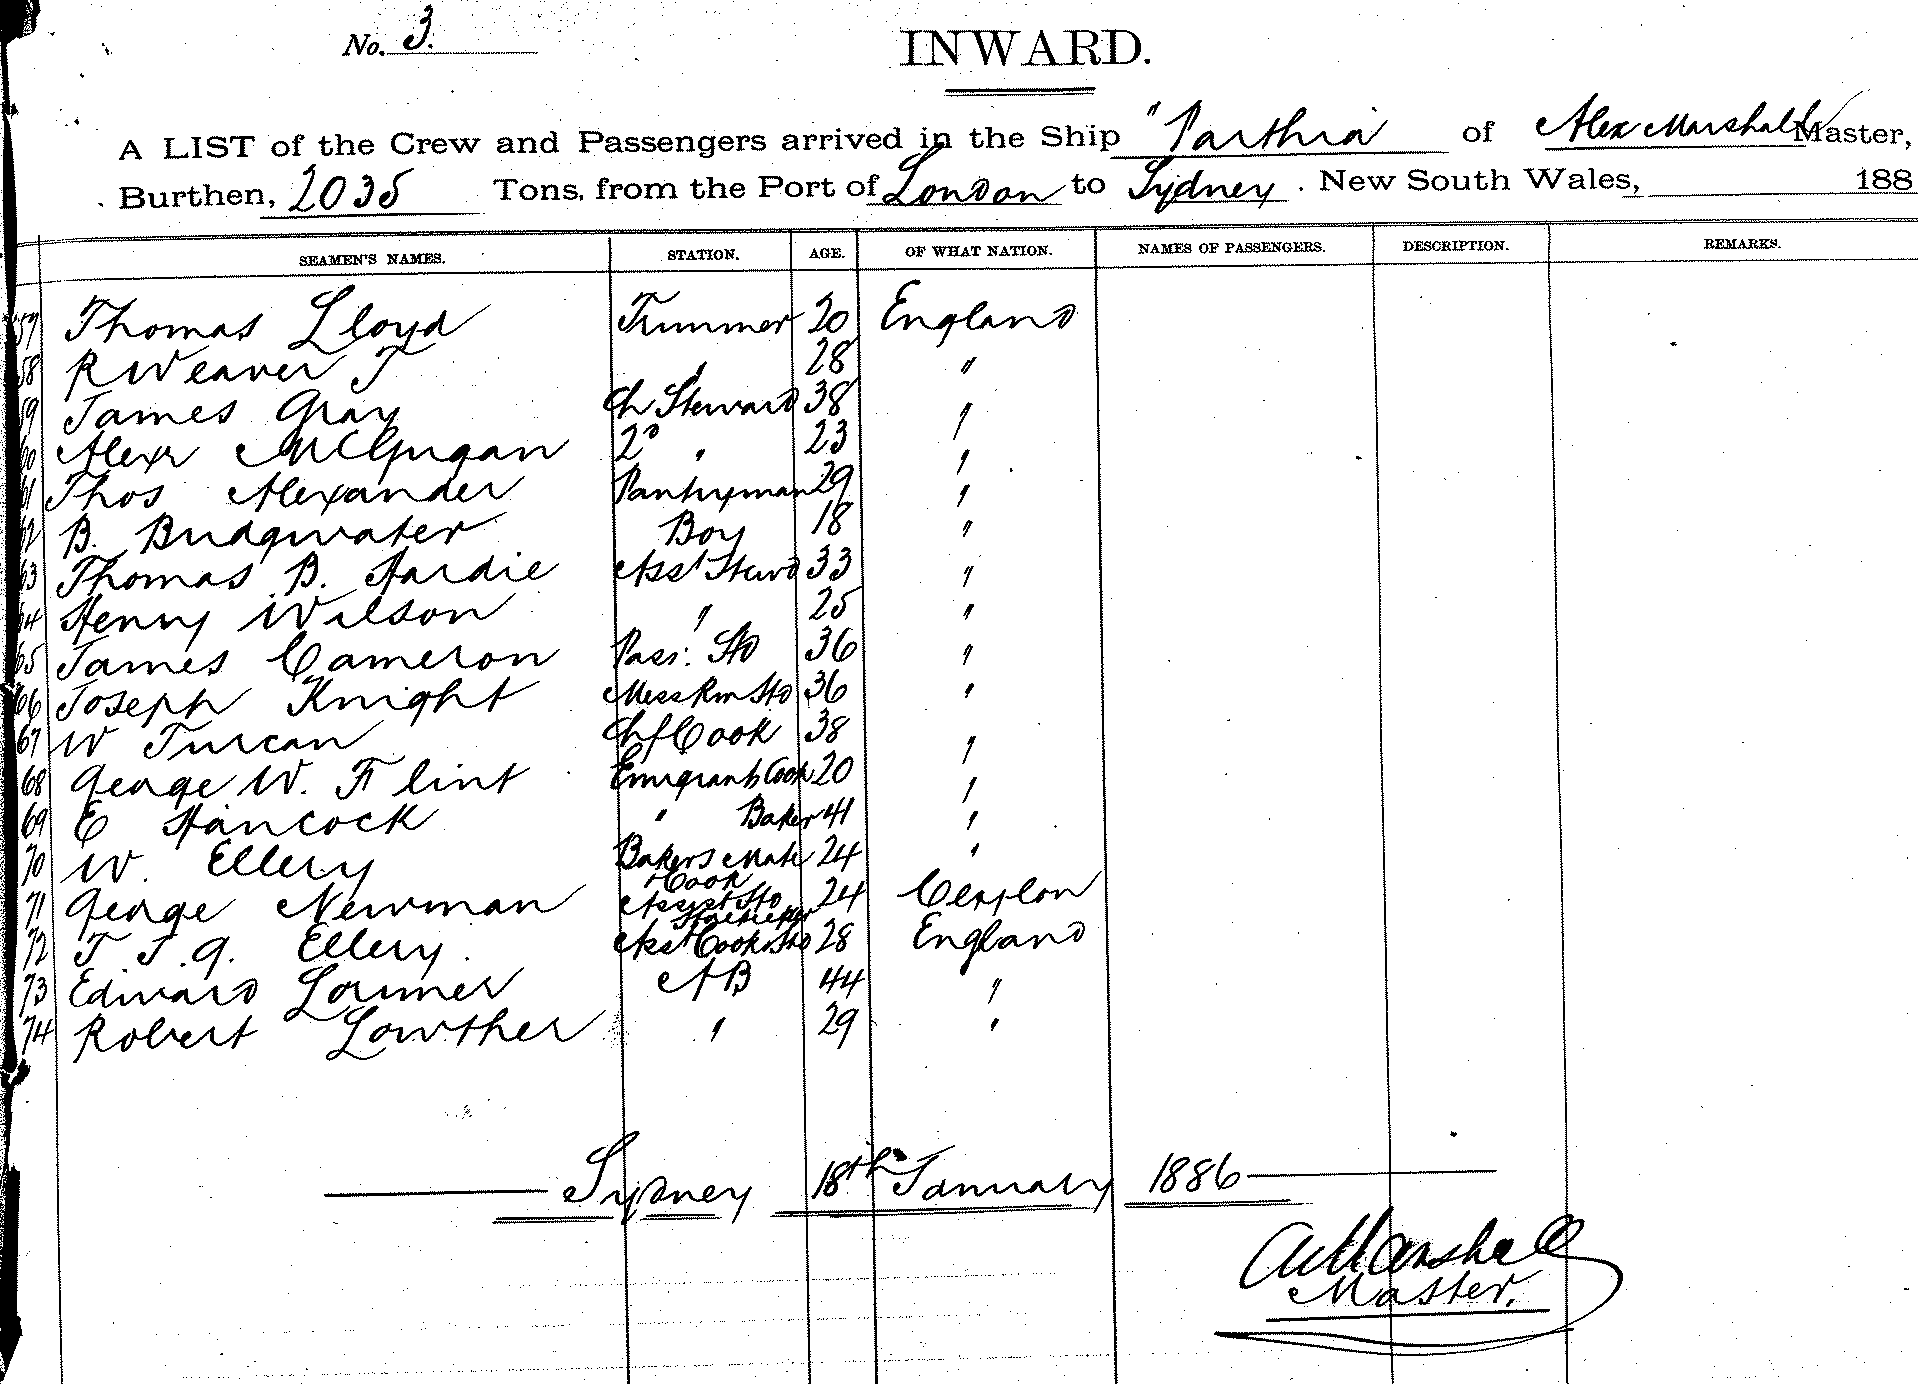 No. 3.
INWARD.
A LIST of the Crew and Passengers arrived in the Ship "Parthia of Alex Marshall Master,
Burthen, 2035 Tons, from the Port of London to Sydney . New South Wales, 188
SEAMEN'S NAMES. STATION. AGE. OF WHAT NATION. NAMES OF PASSENGERS. DESCRIPTION. REMARKS.
57 Thomas Lloyd Trimmer 20 England
58 R Weaver T " 28 "
59 James Gray Ch Steward 38 "
60 Alexr McGugan 2D " 23 "
61 Thos Alexander Pantryman 29 "
62 B. Bridgwater Boy 18 "
63 Thomas B. Hardie Asst Stewd 33 "
64 Henry Wilson " 25 "
65 James Cameron Pass: Std 36 "
66 Joseph Knight Mess Rm Std 36 "
67 W Turcan Chf Cook 38 "
68 George W. Flint Emigrant Cook 20 "
69 E Hancock " Baker 41 "
70 W. Ellery Bakers Mate 24 "
+ Cook
71 George Newman Assist Std 24 Ceylon
Storekeeper
72 T. J. G. Ellery. Asst Cook Std 28 England
73 Edward Lorimer AB 44 "
74 Robert Lowther " 29 "
Sydney 18th January 1886
A Marshall
Master.